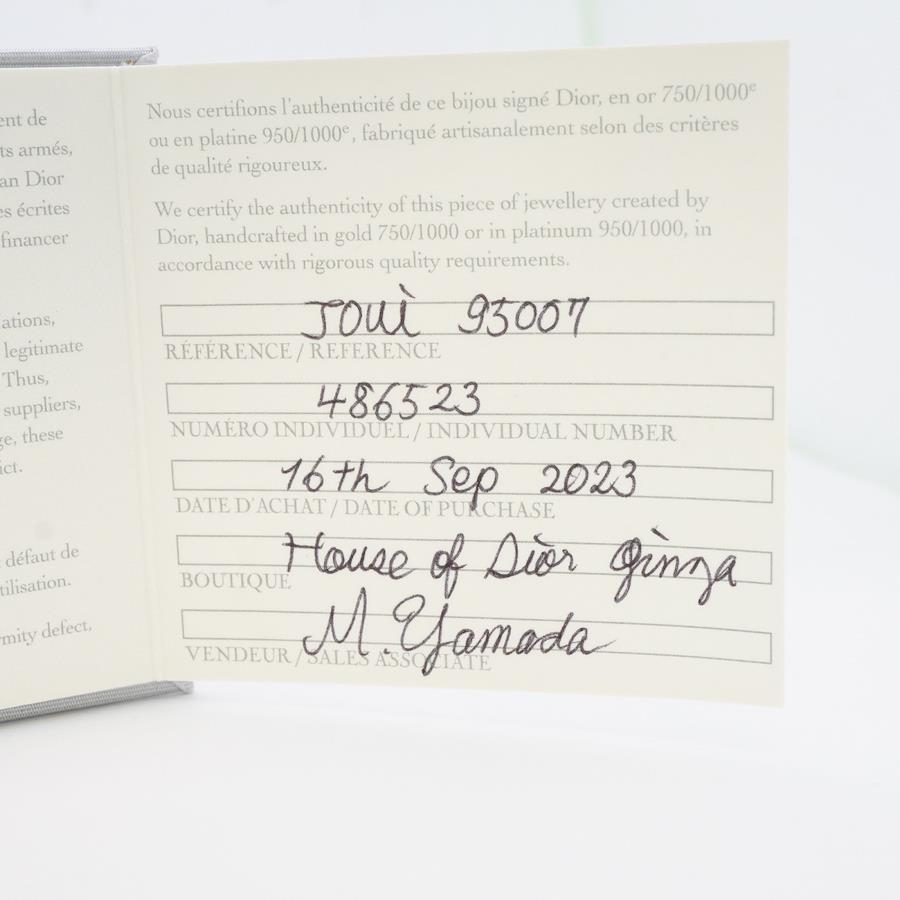 ent de
ts armés,
an Dior
es écrites
financer
ations,
legitimate
Thus,
suppliers,
ge, these
ict.
défaut de
tilisation.
rmity defect,
Nous certifions l'authenticité de ce bijou signé Dior, en or 750/1000e
ou en platine 950/1000e, fabriqué artisanalement selon des critères
de qualité rigoureux.
We certify the authenticity of this piece of jewellery created by
Dior, handcrafted in gold 750/1000 or in platinum 950/1000, in
accordance with rigorous quality requirements.
JOUI 95007
RÉFÉRENCE / REFERENCE
486523
NUMÉRO INDIVIDUEL / INDIVIDUAL NUMBER
16th Sep 2023
DATE D'ACHAT / DATE OF PURCHASE
House of Dior Ginza
BOUTIQUE
M. Yamada
VENDEUR / SALES ASSOCIATE